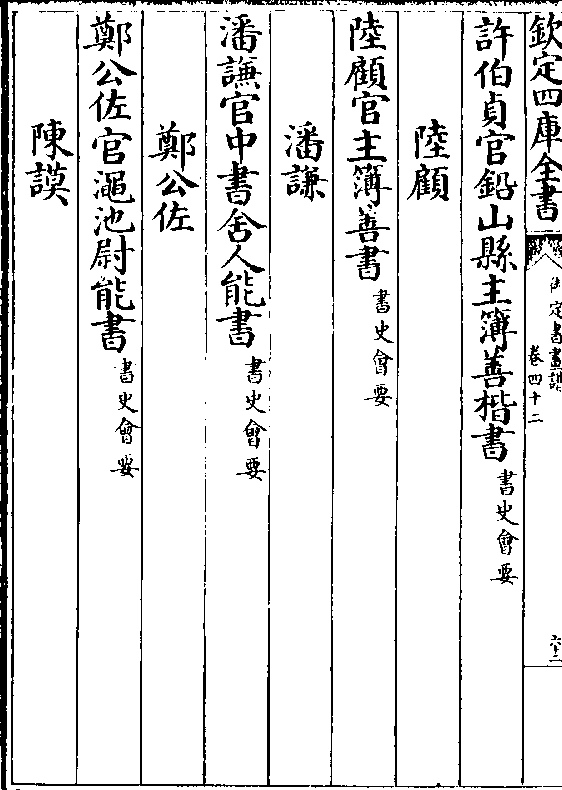 欽定四庫全書
御定書畫譜
卷四十二
六十二
許伯貞官鉛山縣主簿善楷書書史會要
陸顧
陸顧官主簿善書書史會要
潘謙
潘謙官中書舍人能書書史會要
鄭公佐
鄭公佐官澠池尉能書書史會要
陳謨